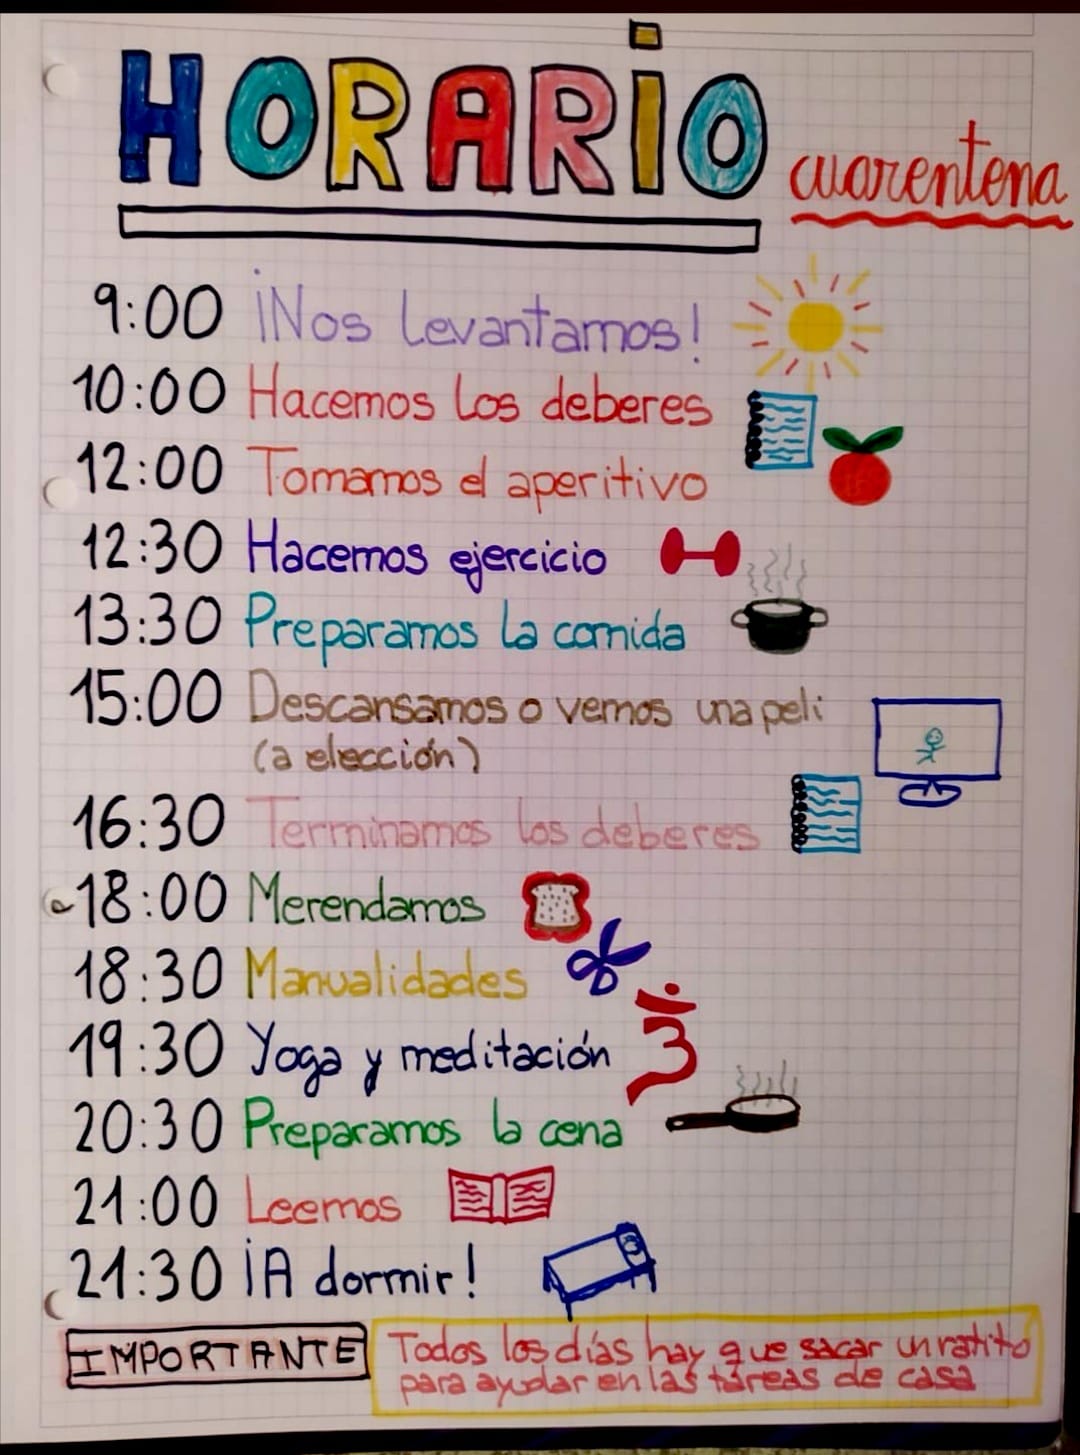 HORARiO cuarentena
9:00 ¡Nos levantamos!
10:00 Hacemos los deberes
12:00 Tomamos el aperitivo
12:30 Hacemos ejercicio
13:30 Preparamos la comida
15:00 Descansamos o vemos una peli
(a elección)
16:30 Terminamos los deberes
18:00 Merendamos
18:30 Manualidades
19:30 Yoga y meditación
20:30 Preparamos la cena
21:00 Leemos
21:30 ¡A dormir!
IMPORTANTE Todos los días hay que sacar un ratito
para ayudar en las tareas de casa